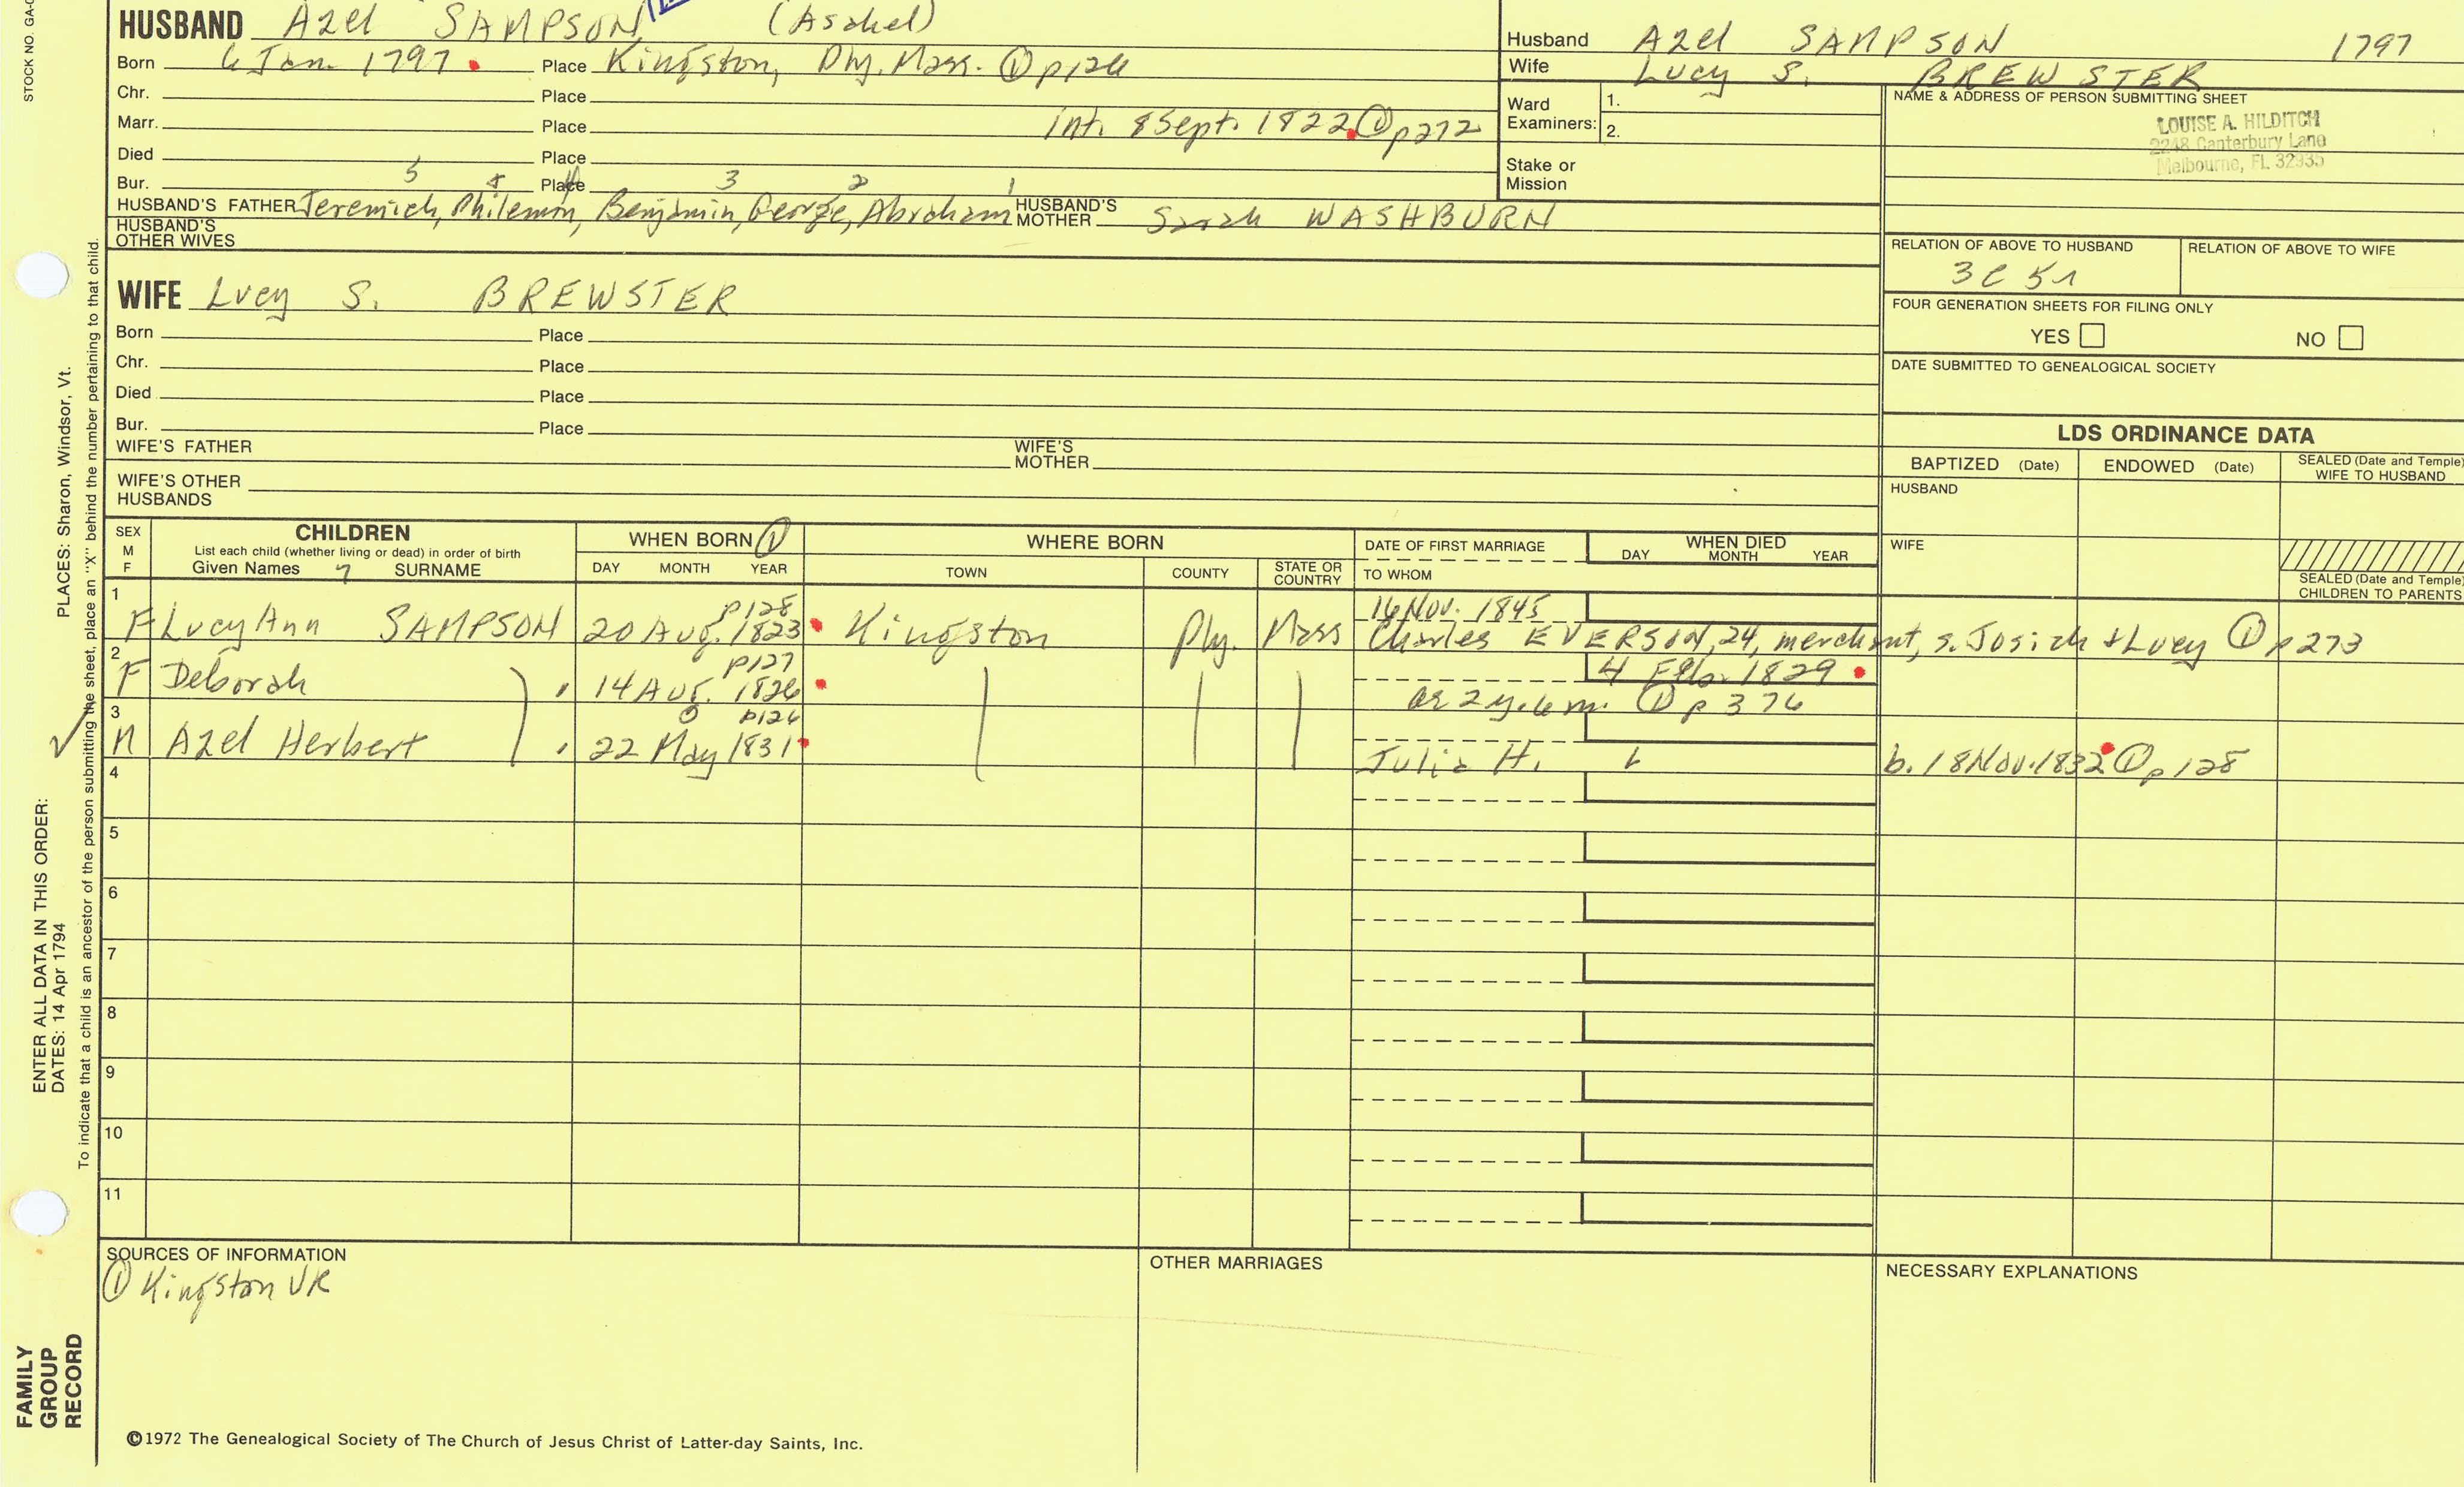 STOCK NO. GA-
HUSBAND Azel SAMPSON (Asahel)
Born 6 Jan 1797 Place Kingston, Ply. Mass. ① p126
Chr. Place
Marr. Place int. 8 Sept. 1822 ① p272
Died Place
Bur. Place
5 4 3 2 1
HUSBAND'S FATHER Jeremiah, Philemon, Benjamin, George, Abraham HUSBAND'S MOTHER Sarah WASHBURN
HUSBAND'S OTHER WIVES
Husband Azel SAMPSON 1797
Wife Lucy S. BREWSTER
Ward Examiners: 1.
2.
Stake or Mission
NAME & ADDRESS OF PERSON SUBMITTING SHEET
LOUISE A. HILDITCH
2248 Canterbury Lane
Melbourne, FL 32935
RELATION OF ABOVE TO HUSBAND RELATION OF ABOVE TO WIFE
3C 5r
FOUR GENERATION SHEETS FOR FILING ONLY
YES NO
DATE SUBMITTED TO GENEALOGICAL SOCIETY
WIFE Lucy S. BREWSTER
Born Place
Chr. Place
Died Place
Bur. Place
WIFE'S FATHER WIFE'S MOTHER
WIFE'S OTHER HUSBANDS
LDS ORDINANCE DATA
BAPTIZED (Date) ENDOWED (Date) SEALED (Date and Temple) WIFE TO HUSBAND
HUSBAND
WIFE
SEALED (Date and Temple) CHILDREN TO PARENTS
SEX M F CHILDREN WHEN BORN ① WHERE BORN DATE OF FIRST MARRIAGE WHEN DIED
List each child (whether living or dead) in order of birth
Given Names SURNAME DAY MONTH YEAR TOWN COUNTY STATE OR COUNTRY TO WHOM DAY MONTH YEAR
1 p128 16 Nov. 1845
F Lucy Ann SAMPSON 20 Aug. 1823 Kingston Ply. Mass Charles EVERSON, 24, merchant, s. Josiah & Lucy ① p273
2 p127 4 Feb. 1829
F Deborah 14 Aug. 1826 ae 2 y. 6 m. ① p 376
3 p126
M Azel Herbert 22 May 1831 Julia H. b. 18 Nov. 1832 ① p128
4
5
6
7
8
9
10
11
SOURCES OF INFORMATION OTHER MARRIAGES NECESSARY EXPLANATIONS
① Kingston VR
©1972 The Genealogical Society of The Church of Jesus Christ of Latter-day Saints, Inc.
PLACES: Sharon, Windsor, Vt.
To indicate that a child is an ancestor of the person submitting the sheet, place an "X" behind the number pertaining to that child.
ENTER ALL DATA IN THIS ORDER:
DATES: 14 Apr 1794
FAMILY
GROUP
RECORD